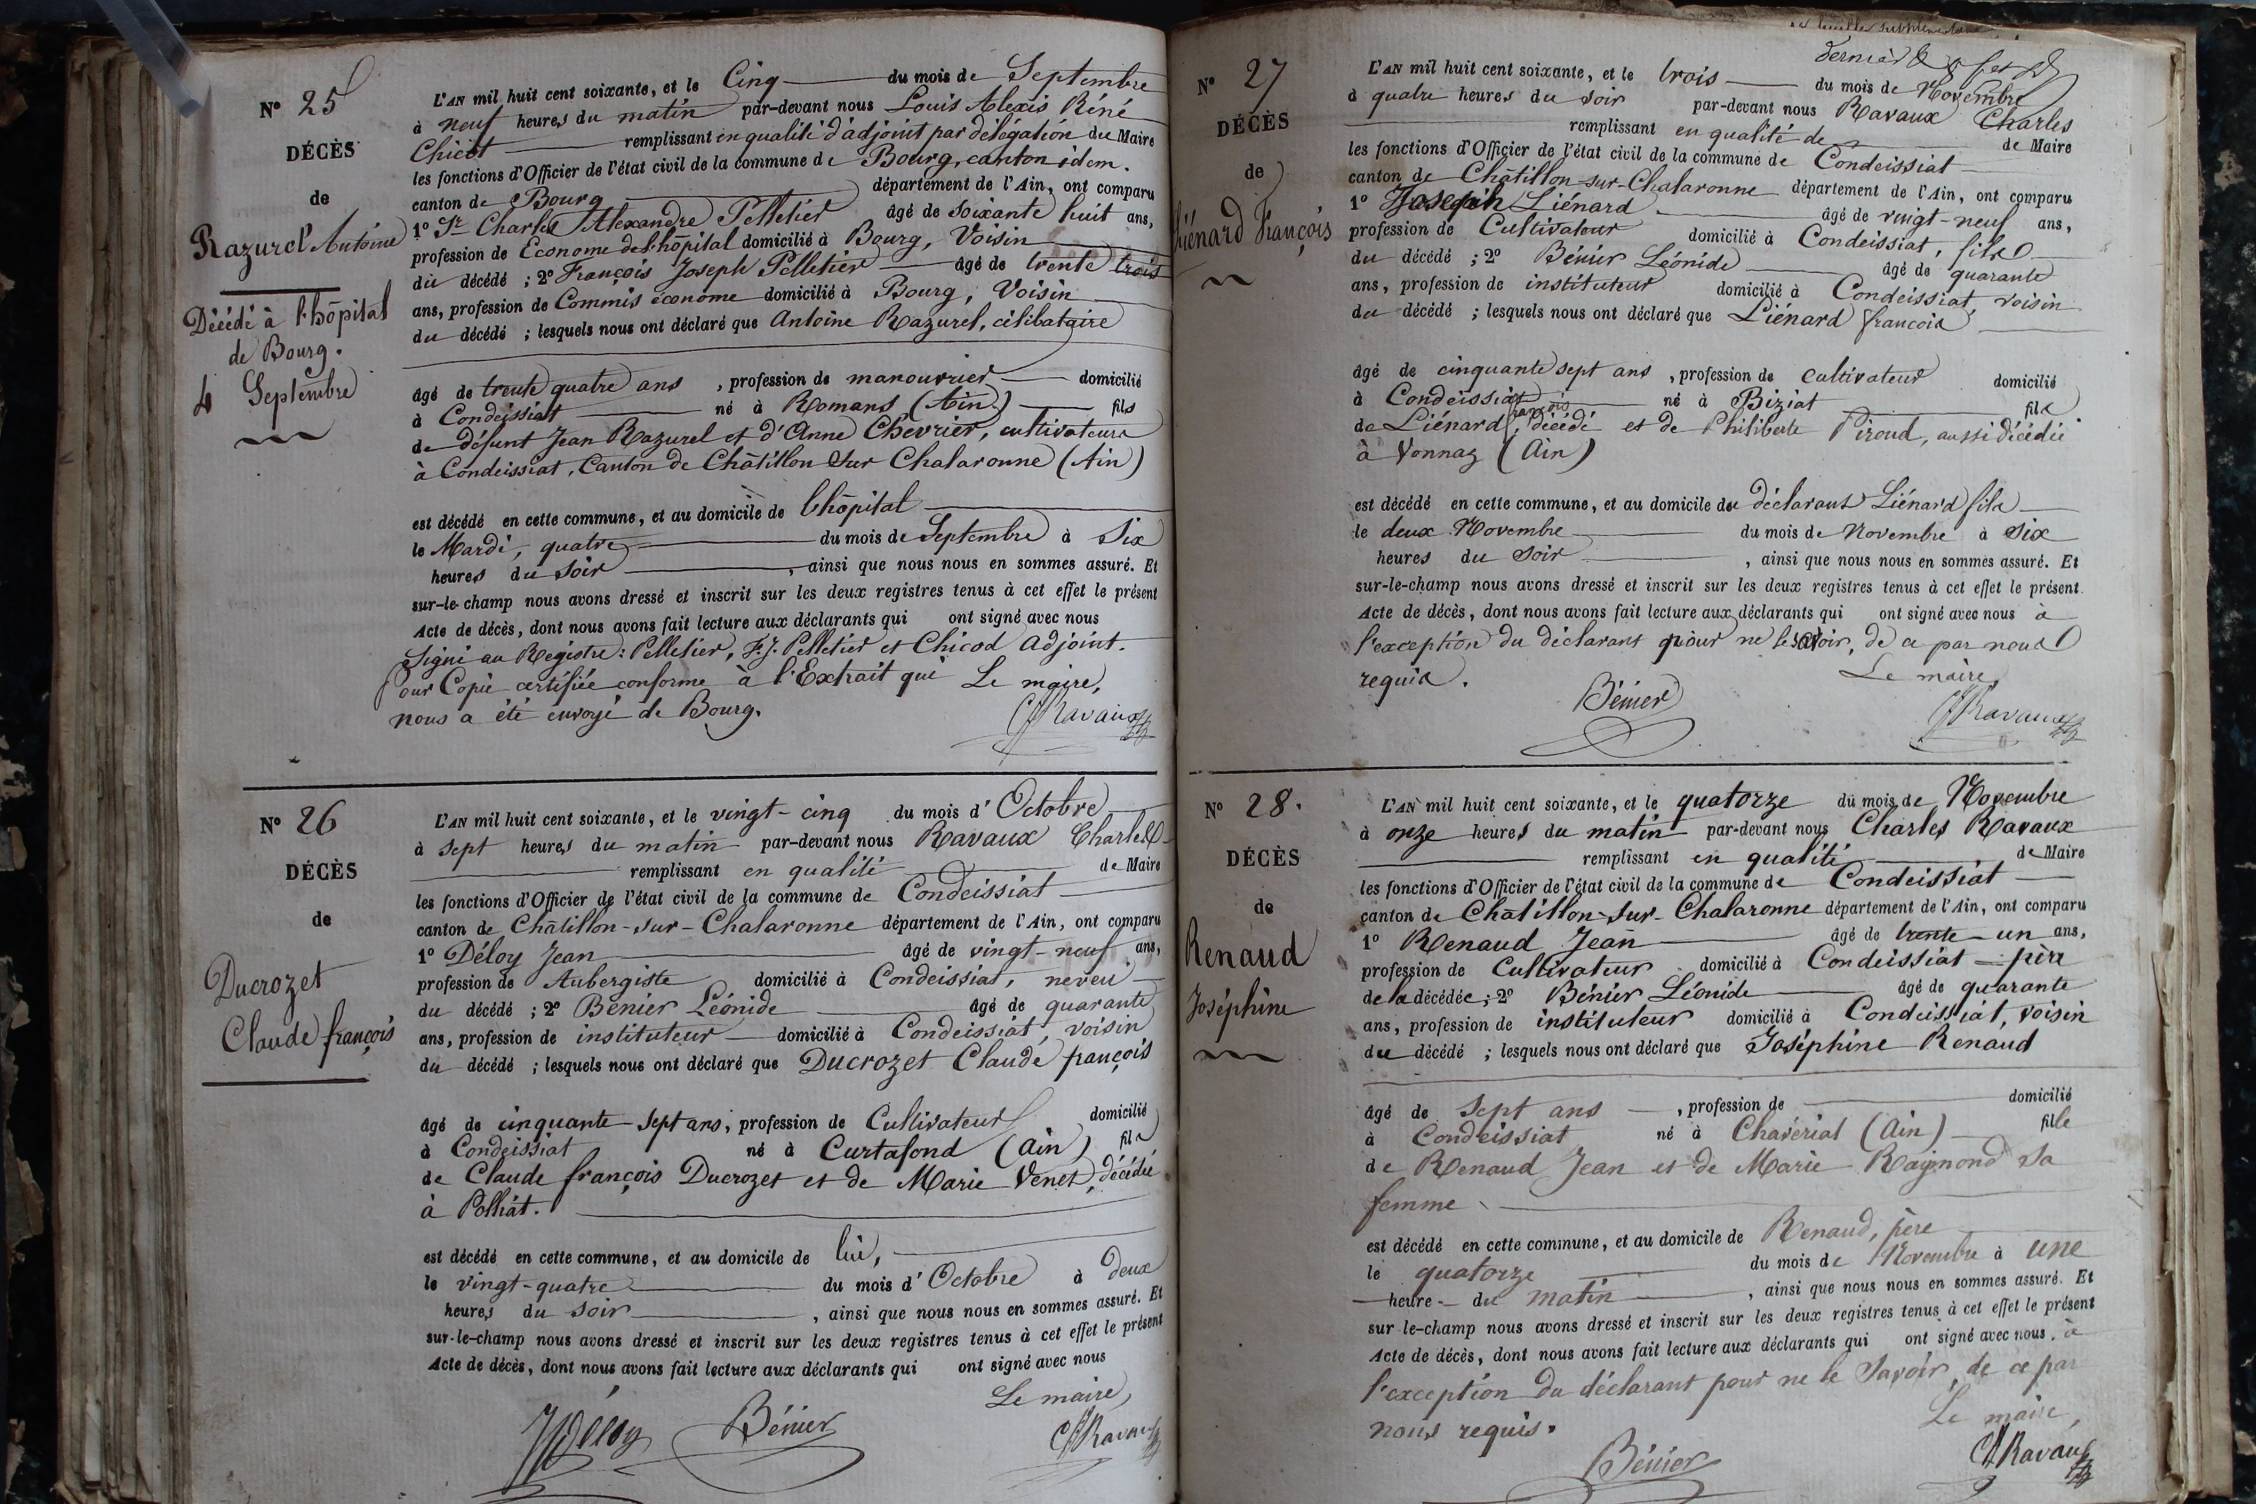 N° 25
DÉCÈS
de
Razurel Antoine
Décédé à l'hôpital
de Bourg.
4 Septembre
L'AN mil huit cent soixante, et le Cinq du mois de Septembre
à neuf heures du matin par-devant nous Louis Alexis Réné
Chicot remplissant en qualité d'adjoint par délégation du Maire
les fonctions d'Officier de l'état civil de la commune de Bourg, canton idem.
canton de Bourg département de l'Ain, ont comparu
1° Sr Charles Alexandre Pelletier âgé de soixante huit ans,
profession de Econome de l'hôpital domicilié à Bourg, Voisin
du décédé ; 2° François Joseph Pelletier âgé de trente trois
ans, profession de Commis économe domicilié à Bourg, Voisin
du décédé ; lesquels nous ont déclaré que Antoine Razurel, célibataire
âgé de trente quatre ans , profession de manouvrier domicilié
à Condeissiat né à Romans (Ain) fils
de défunt Jean Razurel et d'Anne Chevrier, cultivateurs
à Condeissiat, Canton de Châtillon sur Chalaronne (Ain)
est décédé en cette commune, et au domicile de l'hôpital
le Mardi, quatre du mois de Septembre à Six
heures du soir , ainsi que nous nous en sommes assuré. Et
sur-le-champ nous avons dressé et inscrit sur les deux registres tenus à cet effet le présent
Acte de décès, dont nous avons fait lecture aux déclarants qui ont signé avec nous
Signé au Registre : Pelletier, F. J. Pelletier et Chicod adjoint.
Pour Copie certifiée conforme à l'Extrait qui Le maire,
nous a été envoyé de Bourg. Ravaux
N° 26
DÉCÈS
de
Ducrozet
Claude françois
L'AN mil huit cent soixante, et le vingt-cinq du mois d'Octobre
à sept heures du matin par-devant nous Ravaux Charles
remplissant en qualité de Maire
les fonctions d'Officier de l'état civil de la commune de Condeissiat
canton de Châtillon-sur-Chalaronne département de l'Ain, ont comparu
1° Déloy Jean âgé de vingt-neuf ans,
profession de Aubergiste domicilié à Condeissiat, neveu
du décédé ; 2° Bénier Léonide âgé de quarante
ans, profession de instituteur domicilié à Condeissiat, voisin
du décédé ; lesquels nous ont déclaré que Ducrozet Claude françois
âgé de cinquante-sept ans, profession de Cultivateur domicilié
à Condeissiat né à Curtafond (Ain) fils
de Claude françois Ducrozet et de Marie Venet, décédés
à Polliat.
est décédé en cette commune, et au domicile de lui,
le vingt-quatre du mois d'Octobre à deux
heures du soir , ainsi que nous nous en sommes assuré. Et
sur-le-champ nous avons dressé et inscrit sur les deux registres tenus à cet effet le présent
Acte de décès, dont nous avons fait lecture aux déclarants qui ont signé avec nous
Le maire,
Déloy Bénier Ravaux
N° 27
DÉCÈS
de
Liénard François
L'AN mil huit cent soixante, et le trois du mois de Novembre
à quatre heures du soir par-devant nous Ravaux Charles
remplissant en qualité de de Maire
les fonctions d'Officier de l'état civil de la commune de Condeissiat
canton de Châtillon-sur-Chalaronne département de l'Ain, ont comparu
1° Joseph Liénard âgé de vingt-neuf ans,
profession de Cultivateur domicilié à Condeissiat, fils
du décédé ; 2° Bénier Léonide âgé de quarante
ans, profession de instituteur domicilié à Condeissiat, voisin
du décédé ; lesquels nous ont déclaré que Liénard françois
âgé de cinquante sept ans , profession de cultivateur domicilié
à Condeissiat né à Biziat fils
de Liénard françois, décédé et de Philiberte Piroud, aussi décédée
à Vonnaz (Ain)
est décédé en cette commune, et au domicile du déclarant Liénard fils
le deux Novembre du mois de Novembre à six
heures du soir , ainsi que nous nous en sommes assuré. Et
sur-le-champ nous avons dressé et inscrit sur les deux registres tenus à cet effet le présent
Acte de décès, dont nous avons fait lecture aux déclarants qui ont signé avec nous à
l'exception du déclarant pour ne le savoir, de ce par nous
requis. Le maire,
Bénier Ravaux
N° 28.
DÉCÈS
de
Renaud
Joséphine
L'AN mil huit cent soixante, et le quatorze du mois de Novembre
à onze heures du matin par-devant nous Charles Ravaux
remplissant en qualité de Maire
les fonctions d'Officier de l'état civil de la commune de Condeissiat
canton de Châtillon-sur-Chalaronne département de l'Ain, ont comparu
1° Renaud Jean âgé de trente-un ans,
profession de Cultivateur domicilié à Condeissiat père
de la décédée ; 2° Bénier Léonide âgé de quarante
ans, profession de instituteur domicilié à Condeissiat, voisin
du décédé ; lesquels nous ont déclaré que Joséphine Renaud
âgé de sept ans , profession de domicilié
à Condeissiat né à Chavériat (Ain) fille
de Renaud Jean et de Marie Raymond sa
femme
est décédé en cette commune, et au domicile de Renaud, père
le quatorze du mois de Novembre à une
heure du matin , ainsi que nous nous en sommes assuré. Et
sur-le-champ nous avons dressé et inscrit sur les deux registres tenus à cet effet le présent
Acte de décès, dont nous avons fait lecture aux déclarants qui ont signé avec nous, à
l'exception du déclarant pour ne le savoir, de ce par
nous requis. Le maire,
Bénier Ravaux